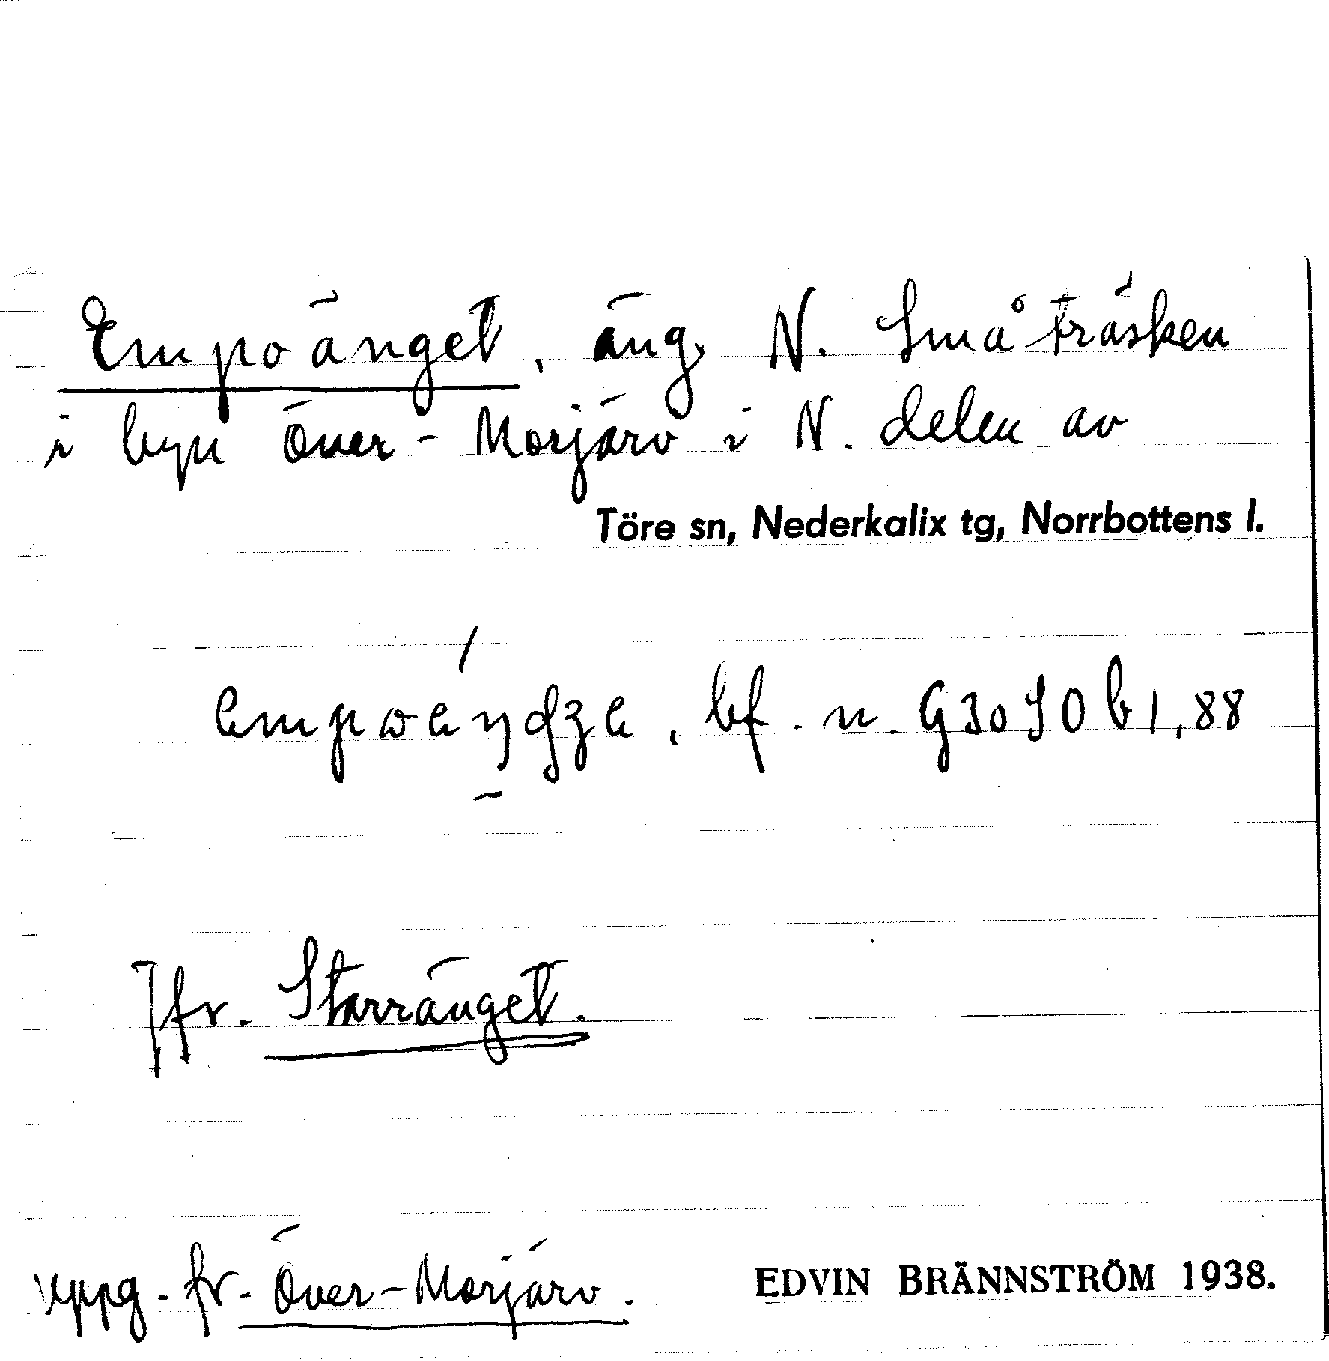 Empoänget, äng, N. Småträsken
i byn Över-Morjärv i N. delen av
Töre sn, Nederkalix tg, Norrbottens l.
bf. n.
Jfr. Starränget.
uppg. fr. Över-Morjärv.
EDVIN BRÄNNSTRÖM 1938.